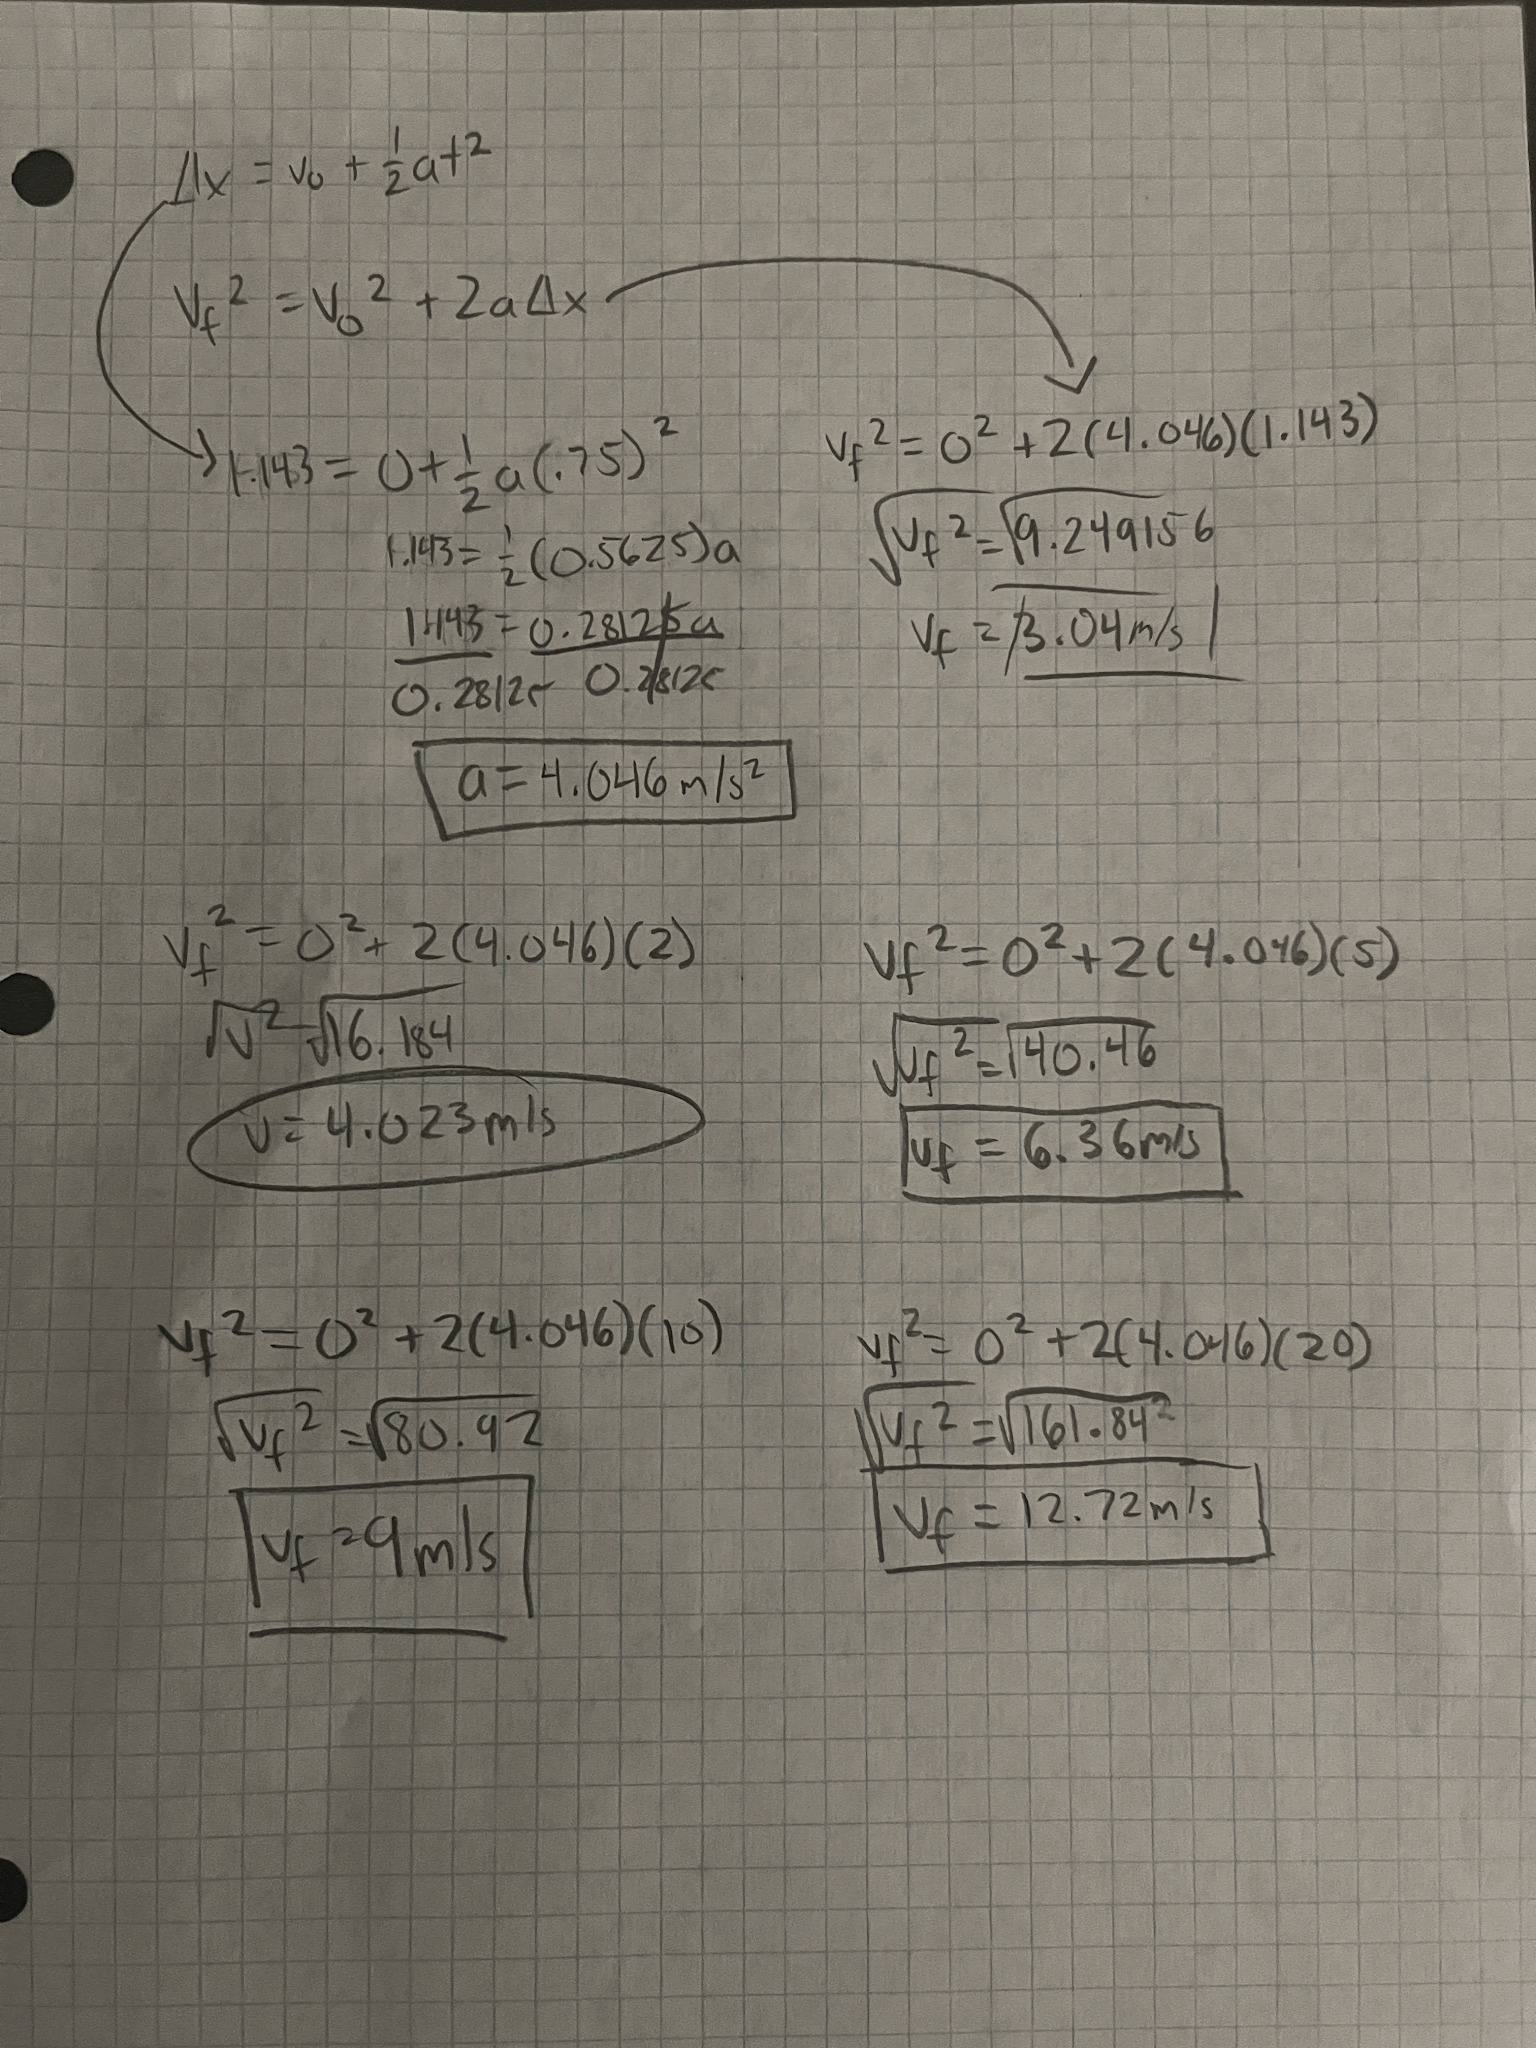 Δx = v₀ + ½at²
V_f² = V₀² + 2aΔx
1.143 = 0 + ½a(.75)²
1.143 = ½(0.5625)a
1.143 = 0.28125a
0.28125 0.28125
a = 4.046 m/s²
V_f² = 0² + 2(4.046)(1.143)
√V_f² = √9.249156
V_f = 3.04 m/s
V_f² = 0² + 2(4.046)(2)
√V² = √16.184
V = 4.023 m/s
V_f² = 0² + 2(4.046)(5)
√V_f² = √40.46
V_f = 6.36 m/s
V_f² = 0² + 2(4.046)(10)
√V_f² = √80.92
V_f = 9 m/s
V_f² = 0² + 2(4.046)(20)
√V_f² = √161.84²
V_f = 12.72 m/s